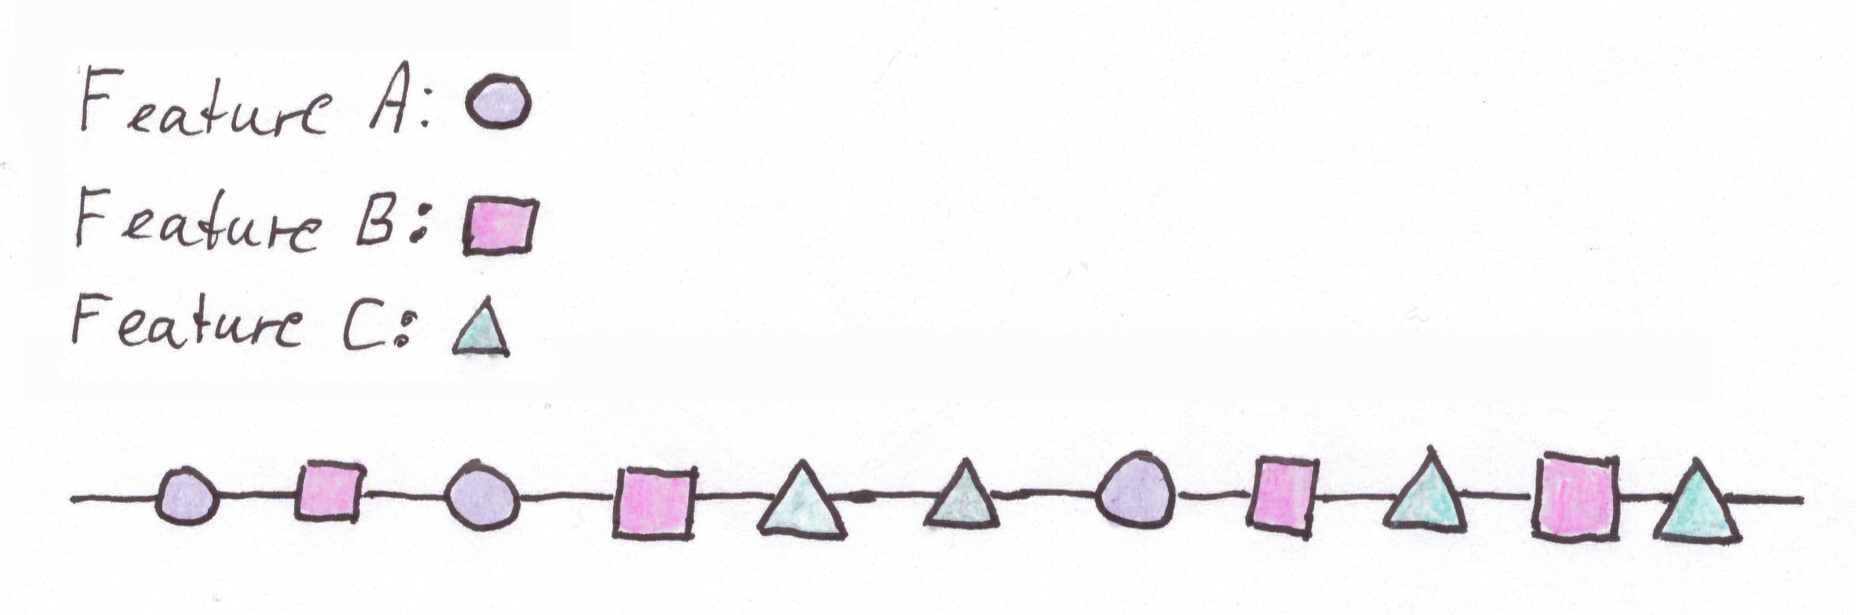 Feature A:
Feature B:
Feature C: